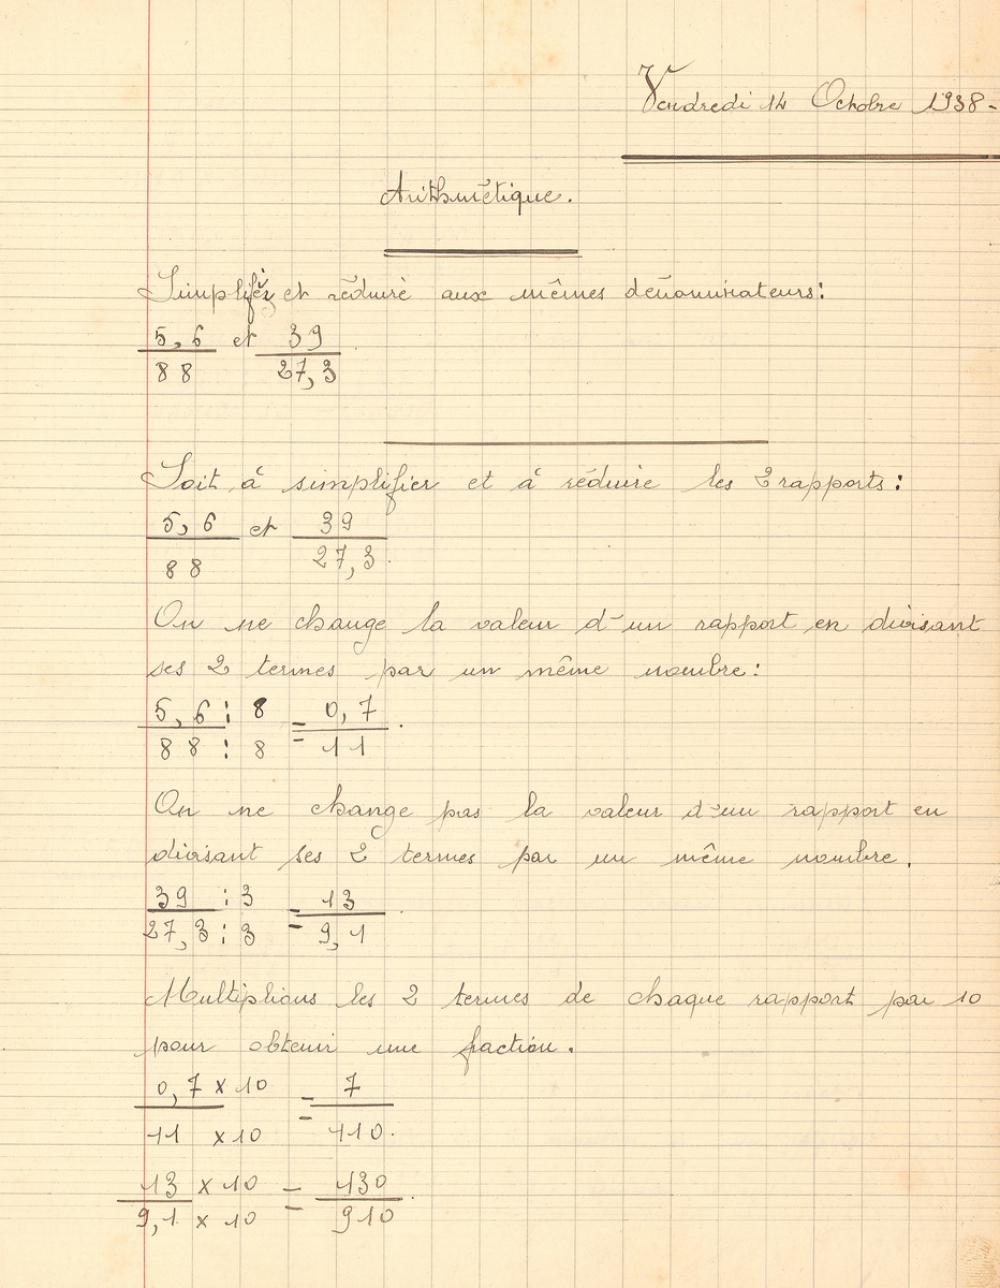 Vendredi 14 Octobre 1938-
Arithmétique.
Simplifier et réduire aux mêmes dénominateurs:
5,6 et 39
88 27,3
Soit à simplifier et à réduire les 2 rapports:
5,6 et 39
88 27,3.
On ne change la valeur d'un rapport en divisant
ses 2 termes par un même nombre:
5,6 : 8 = 0,7.
88 : 8 = 11
On ne change pas la valeur d'un rapport en
divisant ses 2 termes par un même nombre.
39 : 3 = 13.
27,3 : 3 = 9,1
Multiplions les 2 termes de chaque rapport par 10
pour obtenir une fraction.
0,7 x 10 = 7
11 x 10 = 110.
13 x 10 = 130.
9,1 x 10 = 910